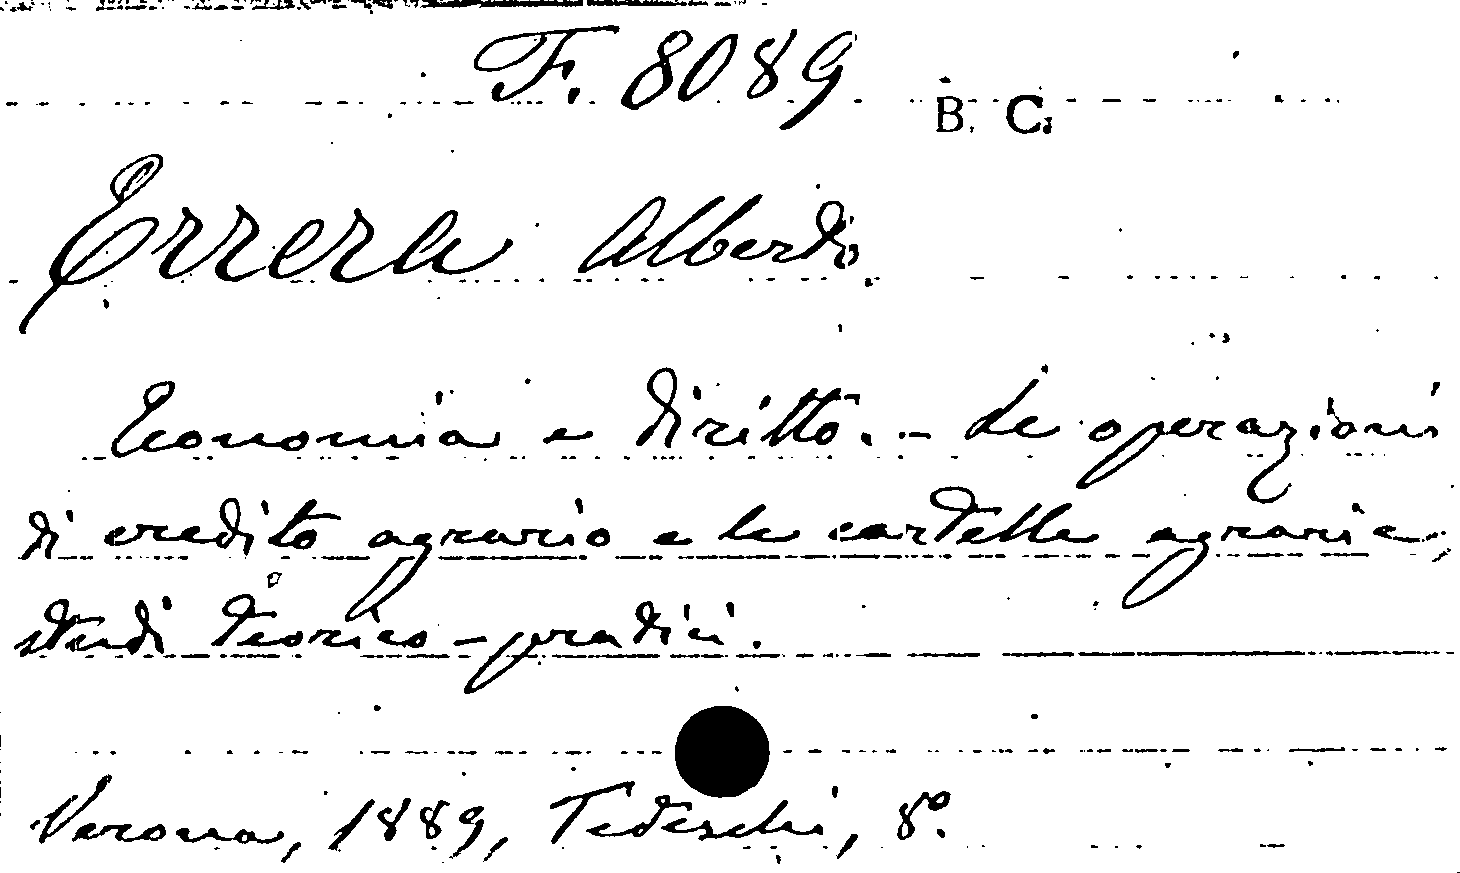 F. 8089
B. C.
Errera Alberto.
Economia e diritto. - Le operazioni
di credito agrario e le cartelle agrarie,
studi teorico-pratici.
Verona, 1889, Tedeschi, 8º.